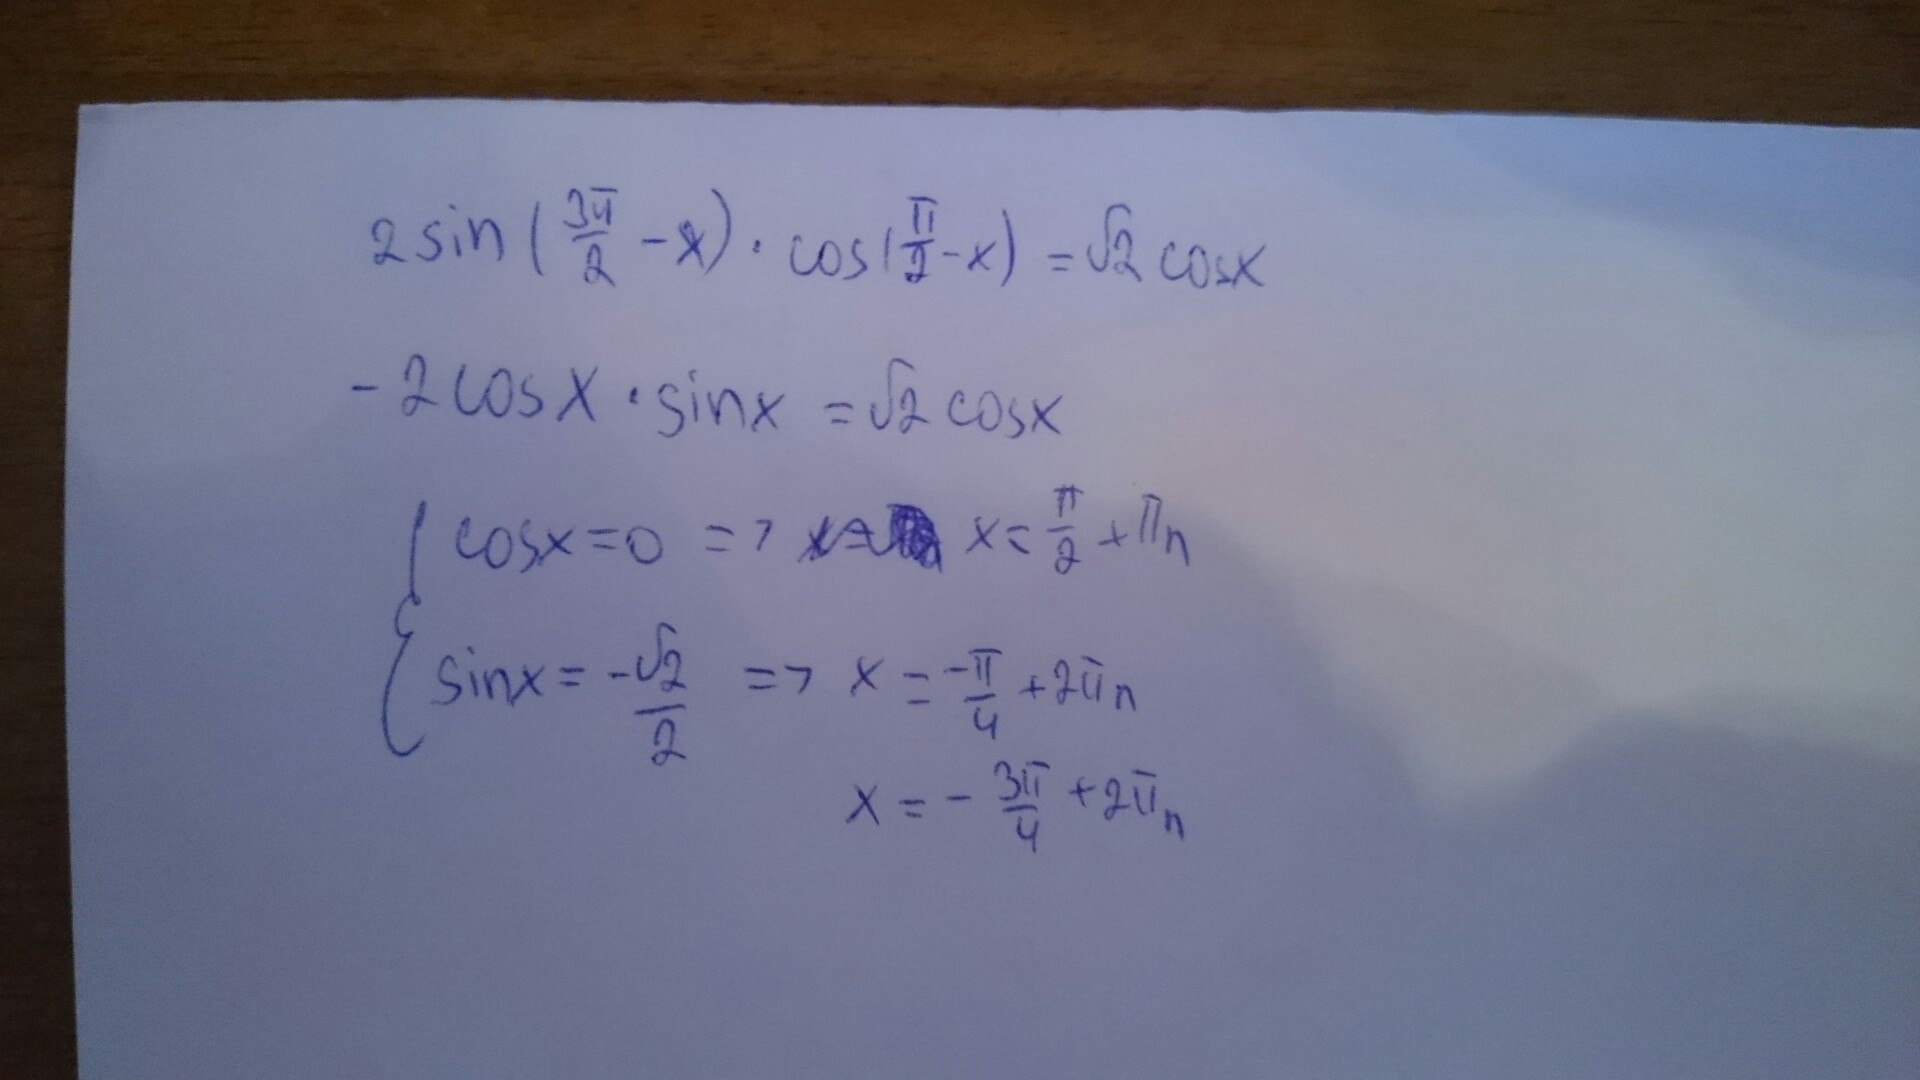 2sin(3π/2 - x) · cos(π/2 - x) = √2 cosx
-2cosx · sinx = √2 cosx
{ cosx = 0 => x = π/2 + πn
{ sinx = -√2/2 => x = -π/4 + 2πn
x = - 3π/4 + 2πn